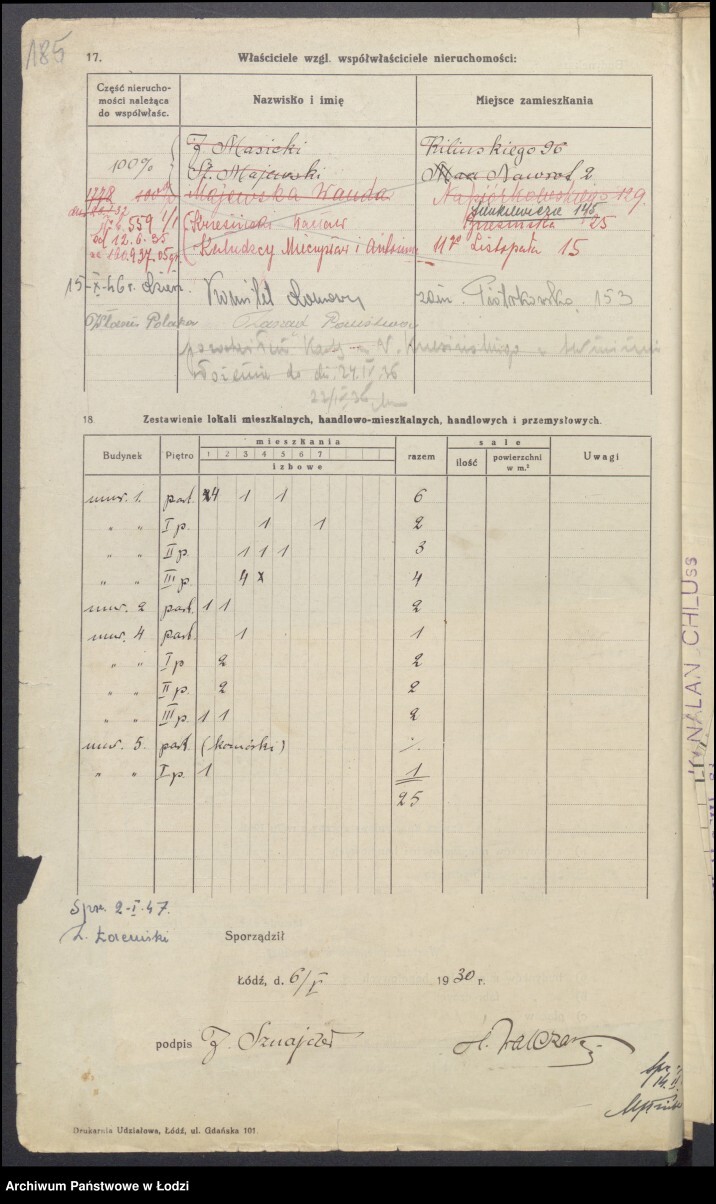 185
17. Właściciele wzgl. współwłaściciele nieruchomości:
Część nierucho-
mości należąca
do współwłaśc.
Nazwisko i imię
Miejsce zamieszkania
J. Masicki Kilinskiego 96
100%
St. Majewski Nawrot 2
100% Majewska Wanda Napiórkowskiego 129.
Sienkiewicza 145
559 1/1 Brzesińska 25
od 12.6.35 Kaludzcy Mieczysław i Antonina 11go Listopada 15
za 120.937,05gr
15-X-46r. Komitet Domowy zam. Piotrkowska 153
Zarząd
do dn. 24.IV.36
18. Zestawienie lokali mieszkalnych, handlowo-mieszkalnych, handlowych i przemysłowych.
Budynek Piętro mieszkania razem sale Uwagi
1 2 3 4 5 6 7
izbowe
ilość powierzchni
w m.²
mur. 1. part. 4 1 1 6
" " I p. 1 1 2
" " II p. 1 1 1 3
" " III p. 4 x 4
mur. 2 part. 1 1 2
mur. 4 part. 1 1
" " I p 2 2
" " II p. 2 2
" " III p. 1 1 2
mur. 5. part. (komórki) ./.
" " I p. 1 1
25
Spr. 2-I-47.
Sporządził
Łódź, d. 6/V 1930 r.
podpis J. Sznajder
Drukarnia Udziałowa, Łódź, ul. Gdańska 101
Archiwum Państwowe w Łodzi